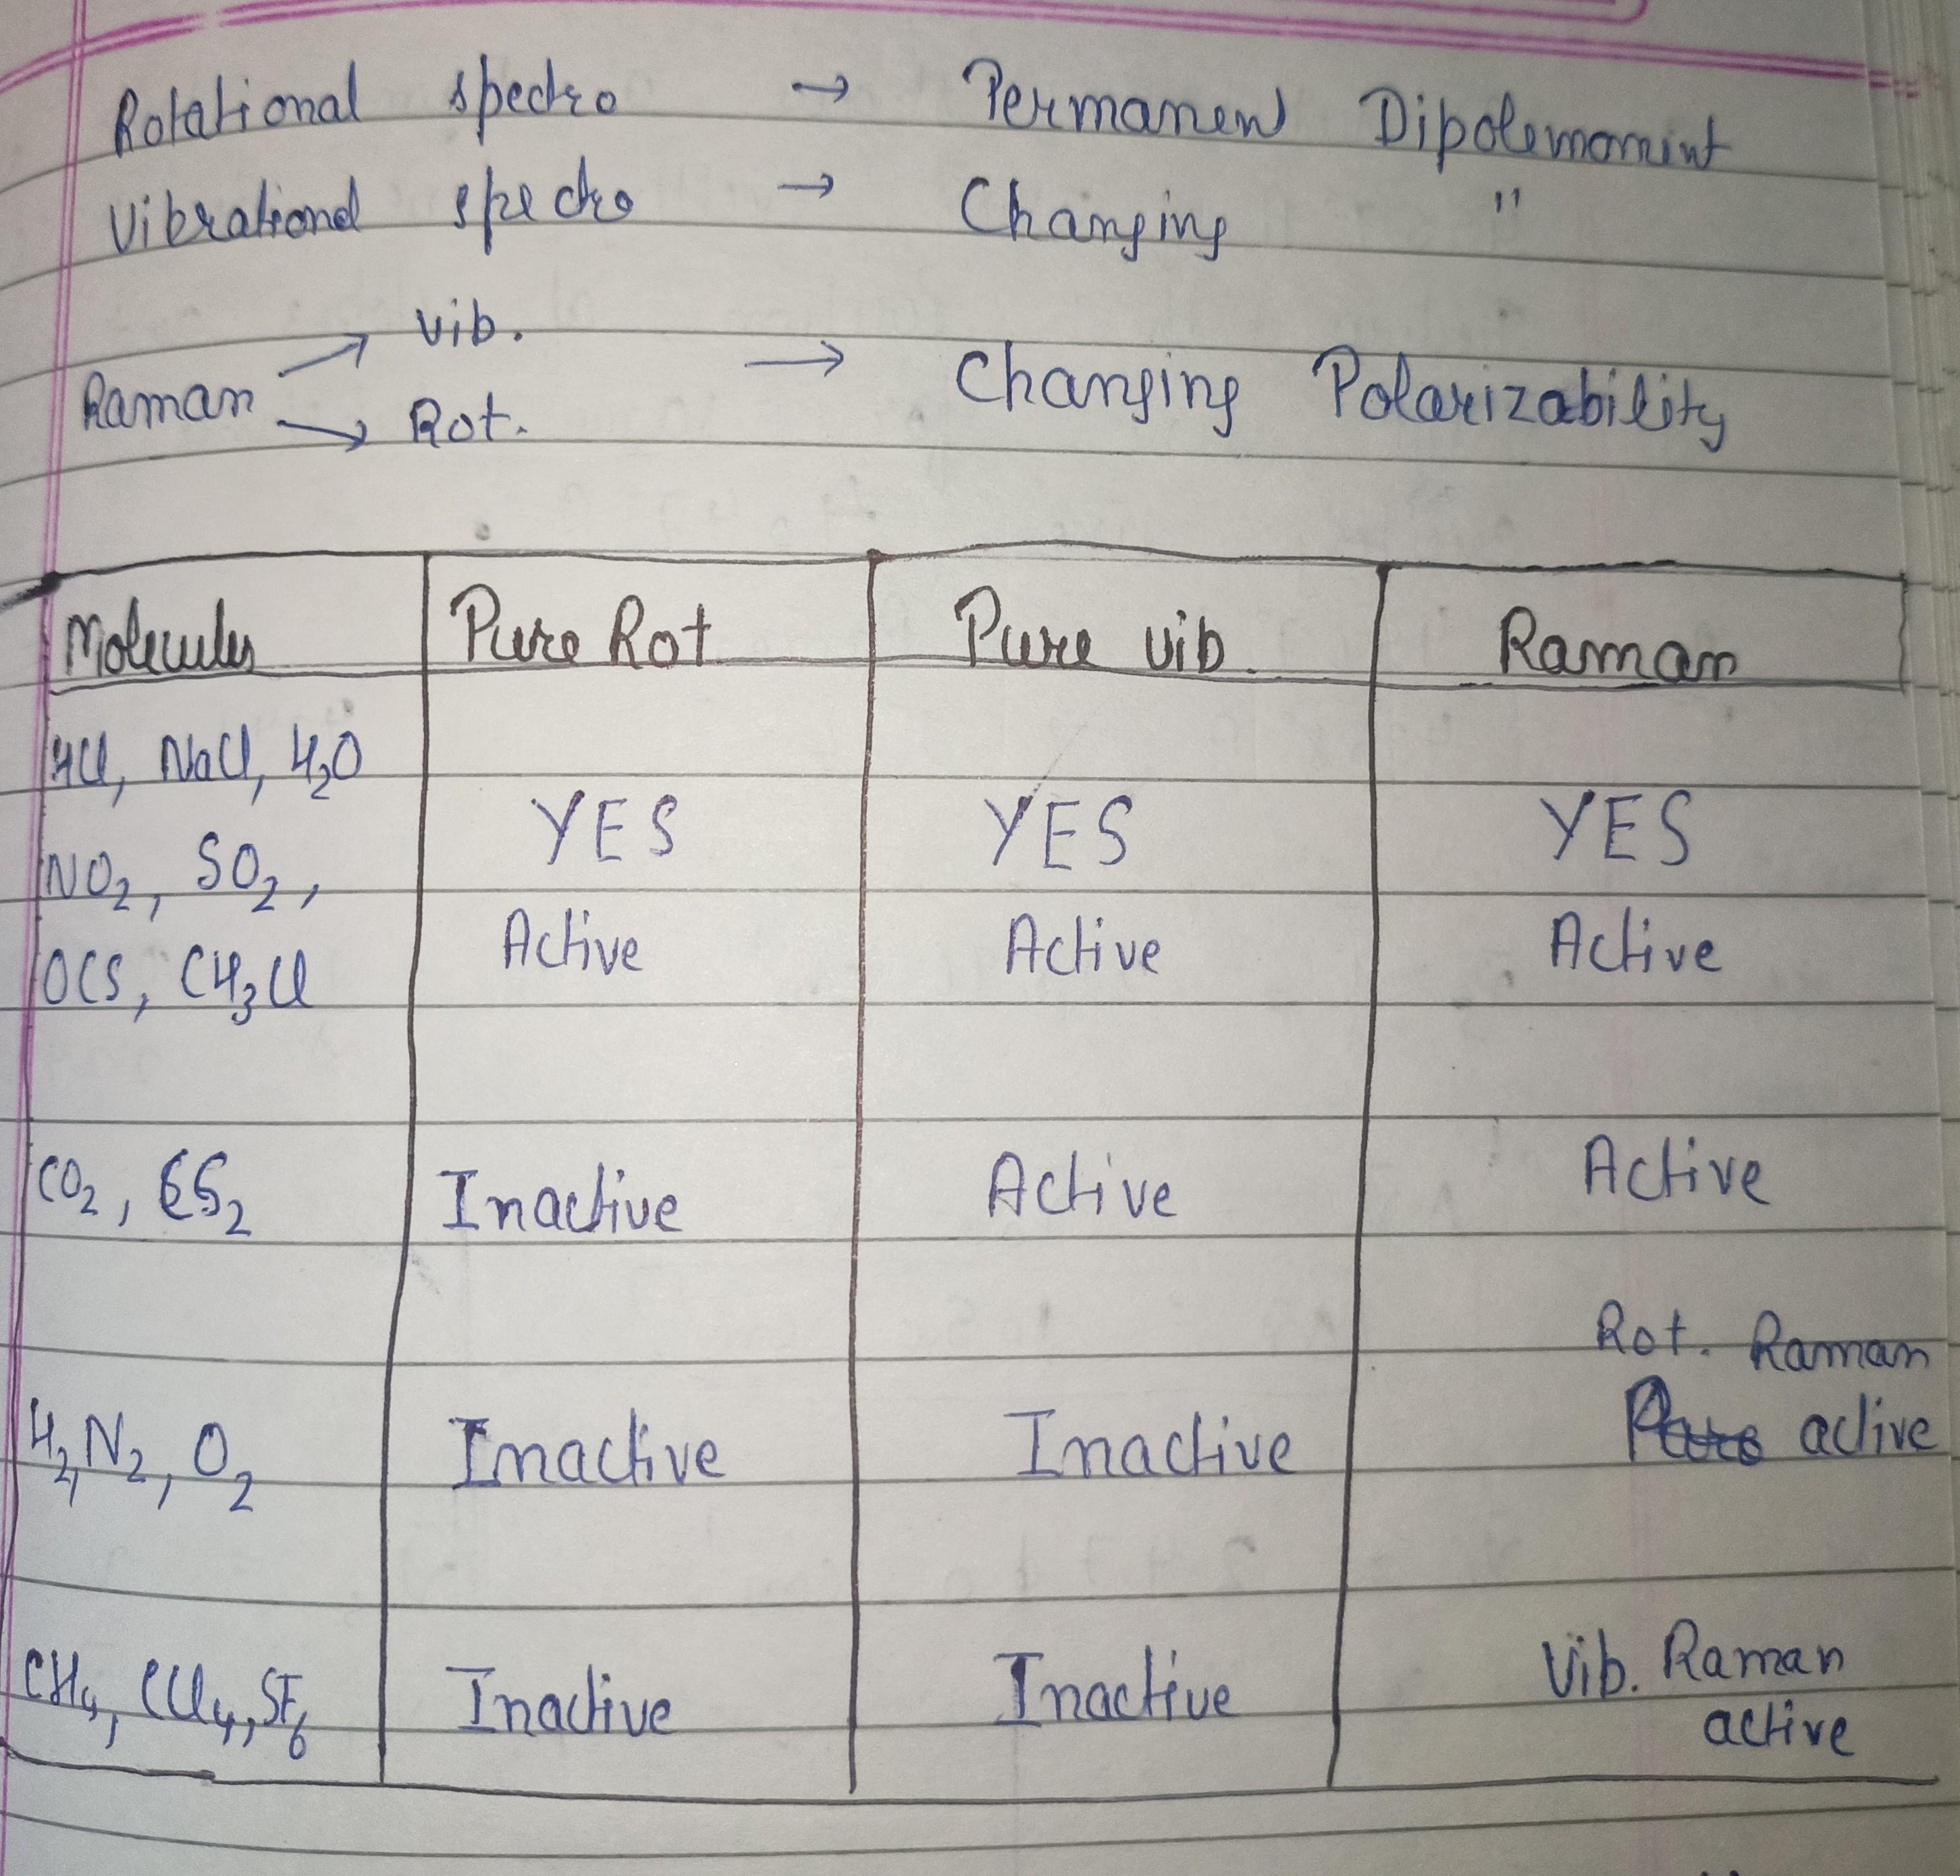 Rotational spectro → Permanent Dipolemomint
Vibrational spectro → Changing "
Raman → Vib. → Rot. → Changing Polarizability
Molecules Pure Rot Pure vib. Raman
HCl, NaCl, H₂O
YES YES YES
NO₂, SO₂,
Active Active Active
OCS, CH₃Cl
CO₂, CS₂ Inactive Active Active
Rot. Raman
H₂, N₂, O₂ Inactive Inactive active
CH₄, CCl₄, SF₆ Inactive Inactive Vib. Raman
active